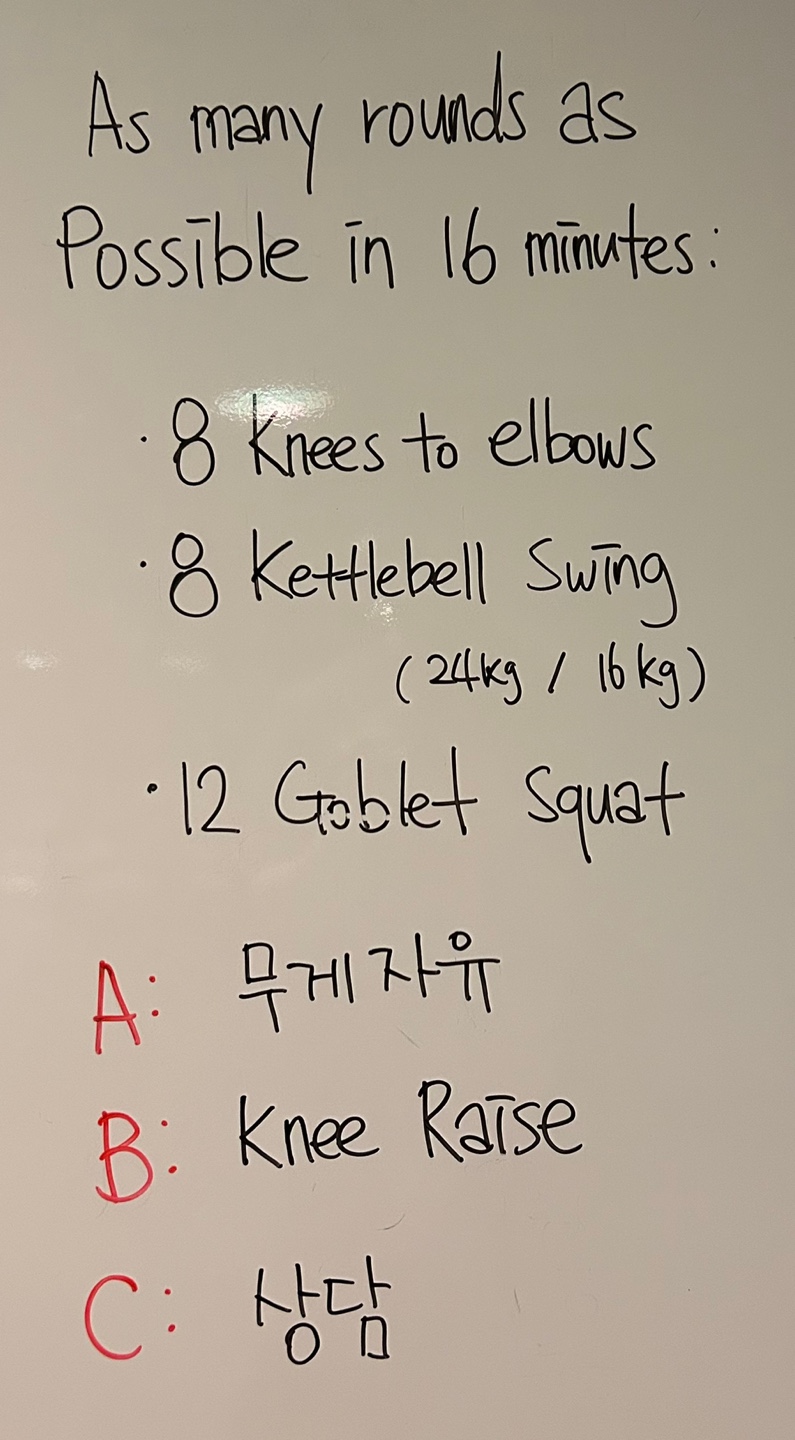 As many rounds as
Possible in 16 minutes:
· 8 Knees to elbows
· 8 Kettlebell Swing
(24kg / 16kg)
· 12 Goblet Squat
A: 무게자유
B: Knee Raise
C: 상담